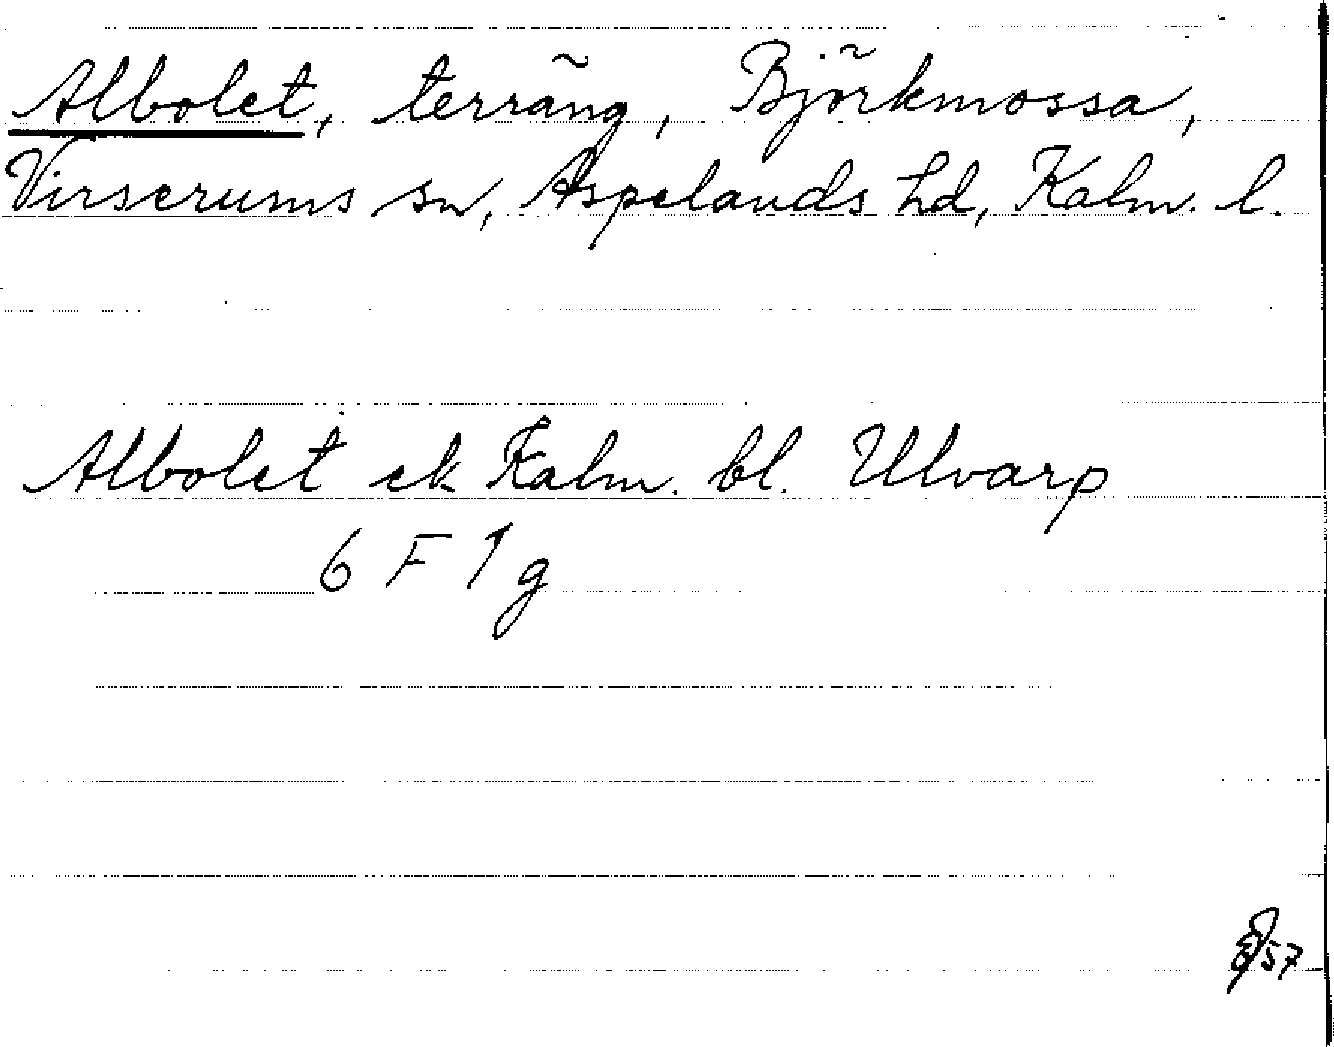 Albolet, terräng, Björkmossa,
Virserums sn, Aspelands hd, Kalm. l.
Albolet ek Kalm. bl. Ulvarp
6 F 1 g
57